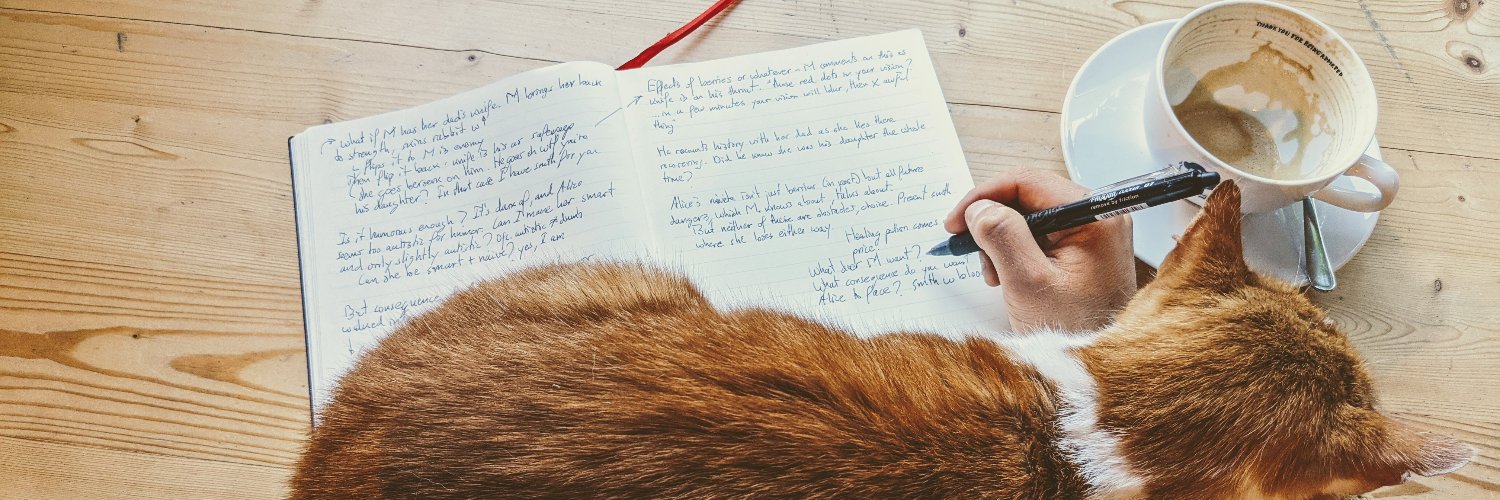 → What if M has her dad's knife. M brings her back
to strength, skins rabbit w/
+ flips it to M is enemy
then flip it back: knife is his as
she goes berserk on him. He goes oh wtf you're
his daughter? In that case I have smth for you
Is it humorous enough? It's dark af, and Alice
seems too autistic for humor. Can I make her smart
and only slightly autistic? Ofc. autistic ≠ dumb
Can she be smart + naive? yes, I am
But consequence
Effects of berries or whatever - M comments on this as
knife is on his throat. "those red dots in your vision?
...in a few minutes your vision will blur, then X awful
thing"
He recounts history with her dad as she lies there
recovering. Did he know she was his daughter the whole
time?
Alice's naivete isn't just berries (in past) but all future
dangers, which M. knows about, talks about.
But neither of these are obstacles, choice. Present
where she loses either way.
Healing potion comes
price?
What does M want?
What consequence do you want
Alice to face? Smth w blood
THANK YOU FOR BEING
removes by friction